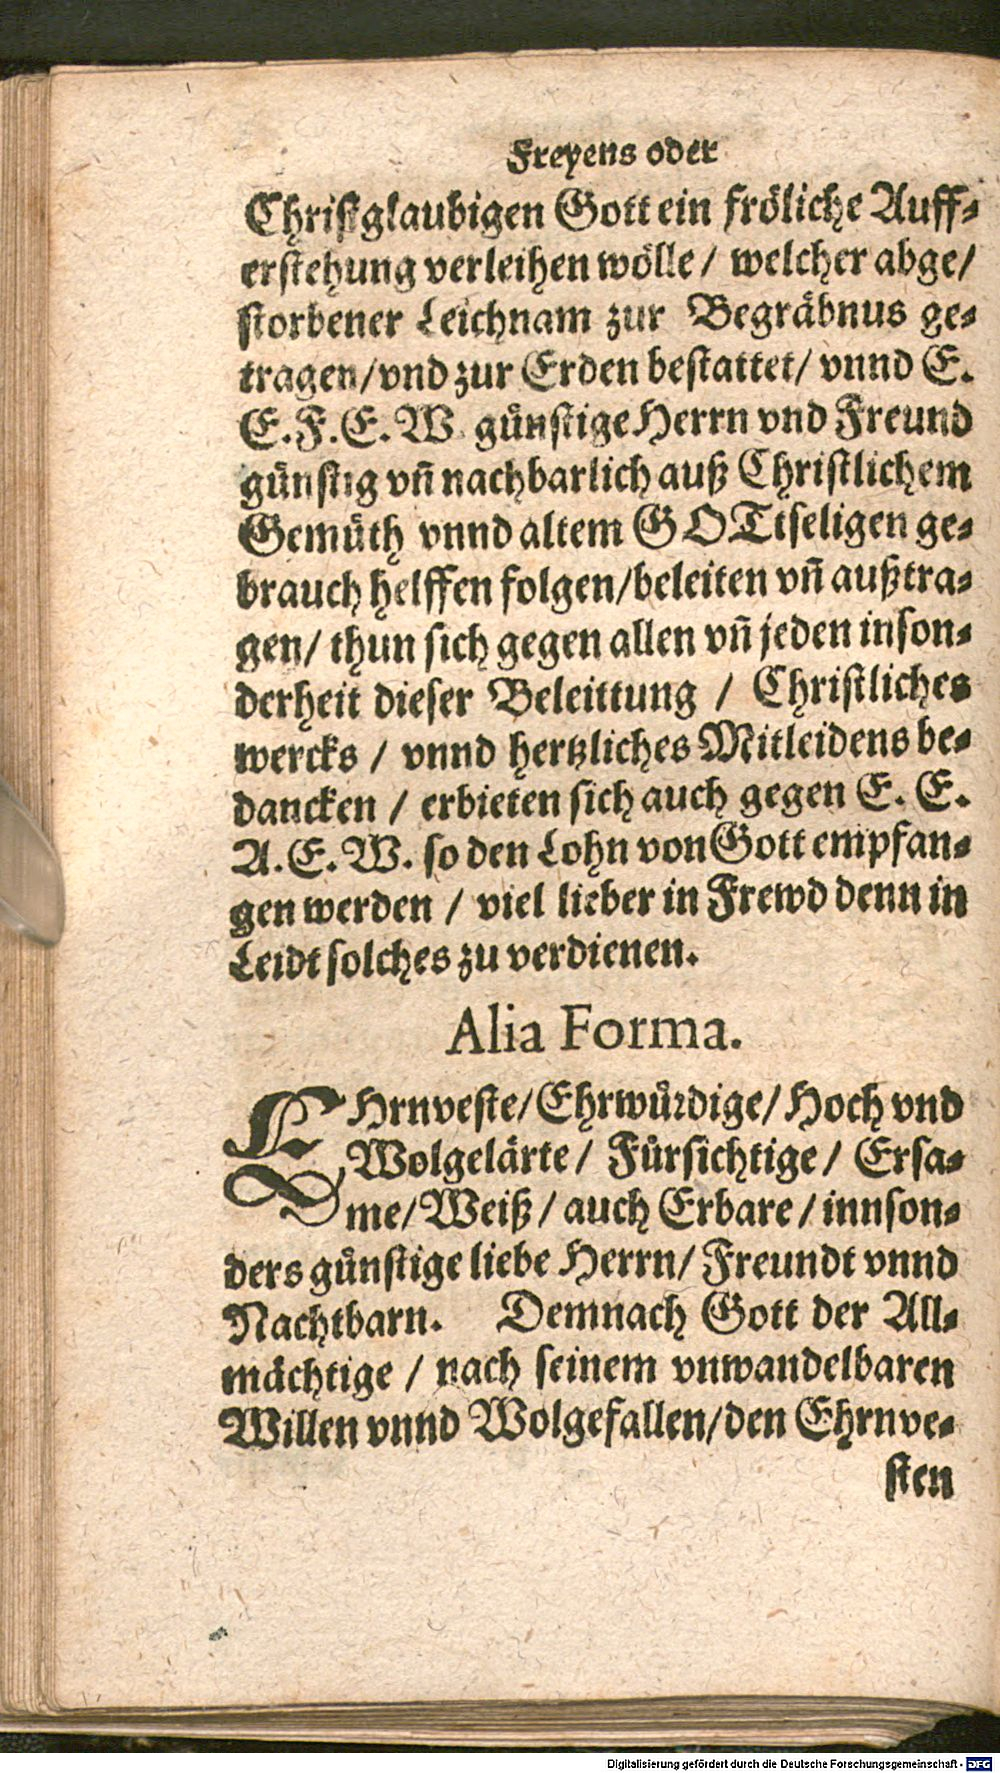 Freyens oder
Christglaubigen Gott ein fröliche Auff-
erstehung verleihen wölle / welcher abge/
storbener Leichnam zur Begräbnus ge-
tragen/vnd zur Erden bestattet/ vnnd E.
E.F.E.W. günstige Herrn vnd Freund
günstig vñ nachbarlich auß Christlichem
Gemüth vnnd altem GOTtseligen ge-
brauch helffen folgen/beleiten vñ außtra-
gen/ thun sich gegen allen vñ jeden inson-
derheit dieser Beleittung / Christliches
wercks / vnnd hertzliches Mitleidens be-
dancken / erbieten sich auch gegen E. E.
A.E.W. so den Lohn von Gott empfan-
gen werden / viel lieber in Frewd denn in
Leidt solches zu verdienen.
Alia Forma.
EHrnveste/Ehrwürdige/Hoch vnd
Wolgelärte/ Fürsichtige/ Ersa-
me/Weiß/ auch Erbare/innson-
ders günstige liebe Herrn/ Freundt vnnd
Nachtbarn. Demnach Gott der All-
mächtige / nach seinem vnwandelbaren
Willen vnnd Wolgefallen/den Ehrnve-
sten
Digitalisierung gefördert durch die Deutsche Forschungsgemeinschaft - DFG